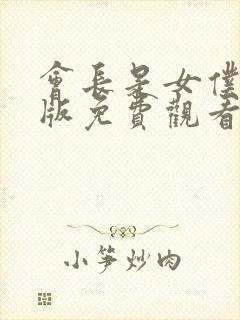 會長是女僕
版免費觀看
小笋炒肉